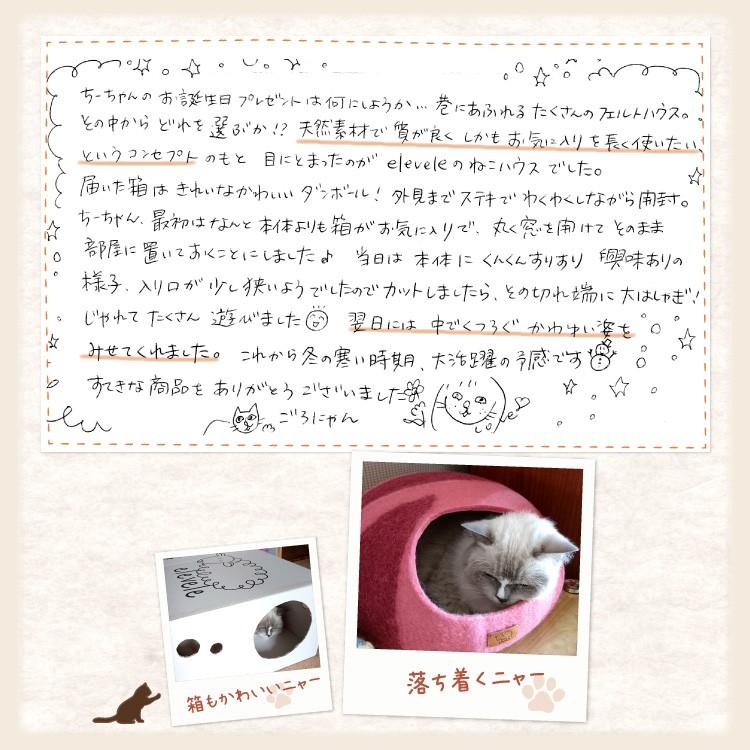 ちーちゃんのお誕生日プレゼントは何にしようか… 巷にあふれるたくさんのフェルトハウス。
その中からどれを選ぶか!? 天然素材で質が良くしかもお気に入りを長く使いたい、
というコンセプトのもと 目にとまったのが eleveleのねこハウスでした。
届いた箱はきれいなかわいいダンボール! 外見までステキでわくわくしながら開封。
ちーちゃん、最初はなんと本体よりも箱がお気に入りで、丸く窓を開けてそのまま
部屋に置いておくことにしました♪ 当日は本体にくんくんすりすり 興味ありの
様子、入り口が少し狭いようでしたのでカットしましたら、その切れ端に大はしゃぎ!
じゃれてたくさん遊びました 翌日には中でくつろぐかわゆい姿を
みせてくれました。これから冬の寒い時期、大活躍の予感です
すてきな商品をありがとうございました
ごろにゃん
elevele
箱もかわいいニャー
落ち着くニャー